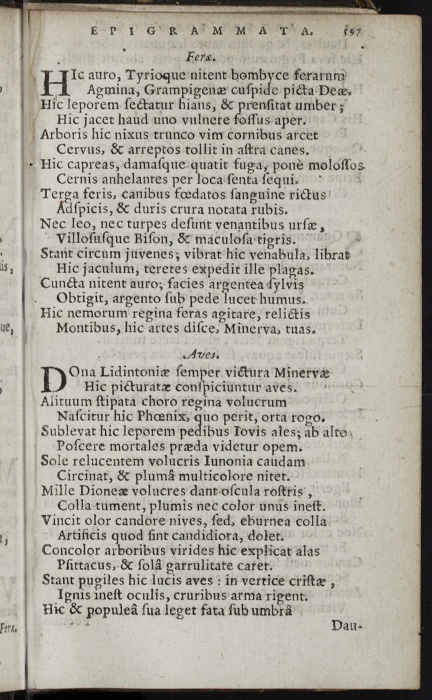 EPIGRAMMATA. 597
Feræ.
HIc auro, Tyrioque nitent bombyce ferarum
Agmina, Grampigenæ cuſpide picta Deæ.
Hic leporem ſectatur hians, & prenſitat umber;
Hic jacet haud uno vulnere foſſus aper.
Arboris hic nixus trunco vim cornibus arcet
Cervus, & arreptos tollit in aſtra canes.
Hic capreas, damaſque quatit fuga, ponè moloſſos
Cernis anhelantes per loca ſenta ſequi.
Terga feris, canibus fœdatos ſanguine rictus
Adſpicis, & duris crura notata rubis.
Nec leo, nec turpes deſunt venantibus urſæ,
Villoſuſque Biſon, & maculoſa tigris.
Stant circum juvenes; vibrat hic venabula, librat
Hic jaculum, teretes expedit ille plagas.
Cuncta nitent auro; facies argentea ſylvis
Obtigit, argento ſub pede lucet humus.
Hic nemorum regina feras agitare, relictis
Montibus, hic artes diſce, Minerva, tuas.
Aves.
DOna Lidintoniæ ſemper victura Minervæ
Hic picturatæ conſpiciuntur aves.
Alituum ſtipata choro regina volucrum
Naſcitur hic Phœnix, quo perit, orta rogo.
Sublevat hic leporem pedibus Iovis ales; ab alto
Poſcere mortales præda videtur opem.
Sole relucentem volucris Iunonia caudam
Circinat, & plumâ multicolore nitet.
Mille Dioneæ volucres dant oſcula roſtris,
Colla tument, plumis nec color unus ineſt.
Vincit olor candore nives, ſed, eburnea colla
Artificis quod ſint candidiora, dolet.
Concolor arboribus virides hic explicat alas
Pſittacus, & ſolâ garrulitate caret.
Stant pugiles hic lucis aves: in vertice criſtæ,
Ignis ineſt oculis, cruribus arma rigent.
Hic & populeâ ſua leget fata ſub umbrâ
Dau-
lis,
ue,
Feræ.